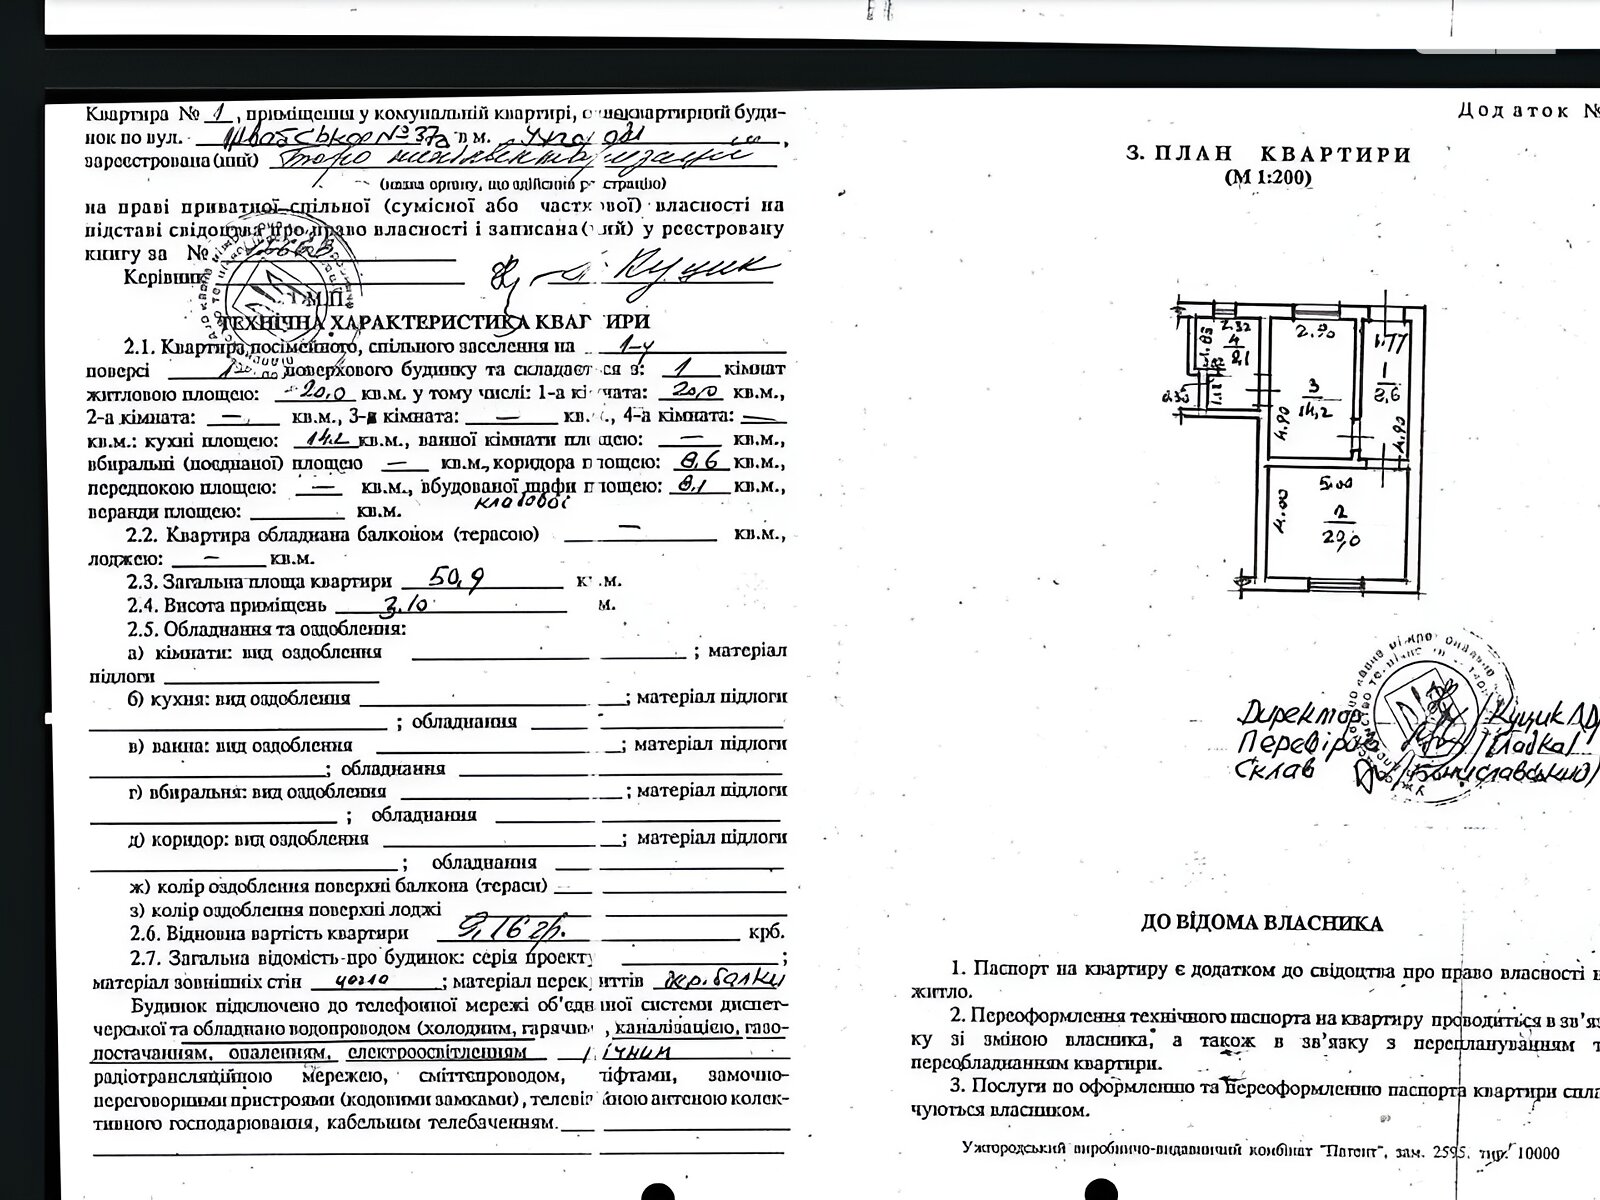 Квартира № 1, приміщення у комунальній квартирі, одноквартирний буди-
нок по вул. Швабська №37а в м. Ужгороді,
зареєстрована (ний) Бюро техінвентаризації
(назва органу, що здійснив реєстрацію)
на праві приватної спільної (сумісної або часткової) власності на
підставі свідоцтва про право власності і записана (ний) у реєстрову
книгу за №
Керівник Куцик
М.П.
ТЕХНІЧНА ХАРАКТЕРИСТИКА КВАРТИРИ
2.1. Квартира посімейного, спільного заселення на 1-у
поверсі поверхового будинку та складається з: 1 кімнат
житловою площею: 20,0 кв.м. у тому числі: 1-а кімната: 20,0 кв.м.,
2-а кімната: — кв.м., 3-я кімната: — кв.м., 4-а кімната: —
кв.м.: кухні площею: 14.2 кв.м., ванної кімнати площею: — кв.м.,
вбиральні (поєднаної) площею — кв.м., коридора площею: 8,6 кв.м.,
передпокою площею: — кв.м., вбудованої шафи площею: 8,1 кв.м.,
кладової
веранди площею: кв.м.
2.2. Квартира обладнана балконом (терасою) — кв.м.,
лоджією: — кв.м.
2.3. Загальна площа квартири 50,9 кв.м.
2.4. Висота приміщень 3.10 м.
2.5. Обладнання та оздоблення:
а) кімнати: вид оздоблення ; матеріал
підлоги
б) кухня: вид оздоблення ; матеріал підлоги
; обладнання
в) ванна: вид оздоблення ; матеріал підлоги
; обладнання
г) вбиральня: вид оздоблення ; матеріал підлоги
; обладнання
д) коридор: вид оздоблення ; матеріал підлоги
; обладнання
ж) колір оздоблення поверхні балкона (тераси)
з) колір оздоблення поверхні лоджі
2.6. Відновна вартість квартири 9,16 гр. крб.
2.7. Загальна відомість про будинок: серія проекту ;
матеріал зовнішніх стін цегла ; матеріал перекриттів дер. балки
Будинок підключено до телефонної мережі об'єднаної системи диспет-
черської та обладнано водопроводом (холодним, гарячим), каналізацією, газо-
постачанням, опаленням, електроосвітленням пічним
радіотрансляційною мережею, сміттєпроводом, ліфтами, замочно-
переговорними пристроями (кодовими замками), телевізійною антеною колек-
тивного господарювання, кабельним телебаченням.
Додаток №
3. ПЛАН КВАРТИРИ
(М 1:200)
2.32
4
8,1
2.90
3
14,2
4.90
1.77
1
8,6
4.90
5.00
4.00
2
20,0
Директор Куцик
Перевірив /Гладка/
Склав
ДО ВІДОМА ВЛАСНИКА
1. Паспорт на квартиру є додатком до свідоцтва про право власності н
житло.
2. Переоформлення технічного паспорта на квартиру проводиться в зв'яз
ку зі зміною власника, а також в зв'язку з переплануванням т
переобладнанням квартири.
3. Послуги по оформленню та переоформленню паспорта квартири спла
чуються власником.
Ужгородський виробничо-видавничий комбінат "Патент", зам. 2595. тир. 10000